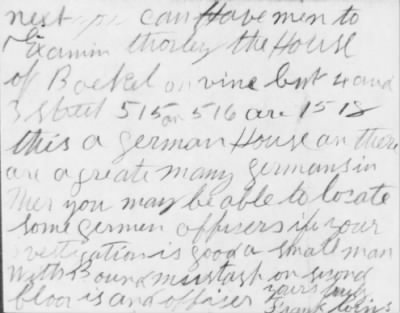 nest you can Have men to
Examin thorley the House
of Boekel on vine but 4 and
3 street 515 or 516 are 1518
this a german House an there
are a greate many germans in
Ther you may be able to locate
some germen officers if your
vestigation is good a small man
With Bound mustash on second
bloor is and officer yours truly
Frank